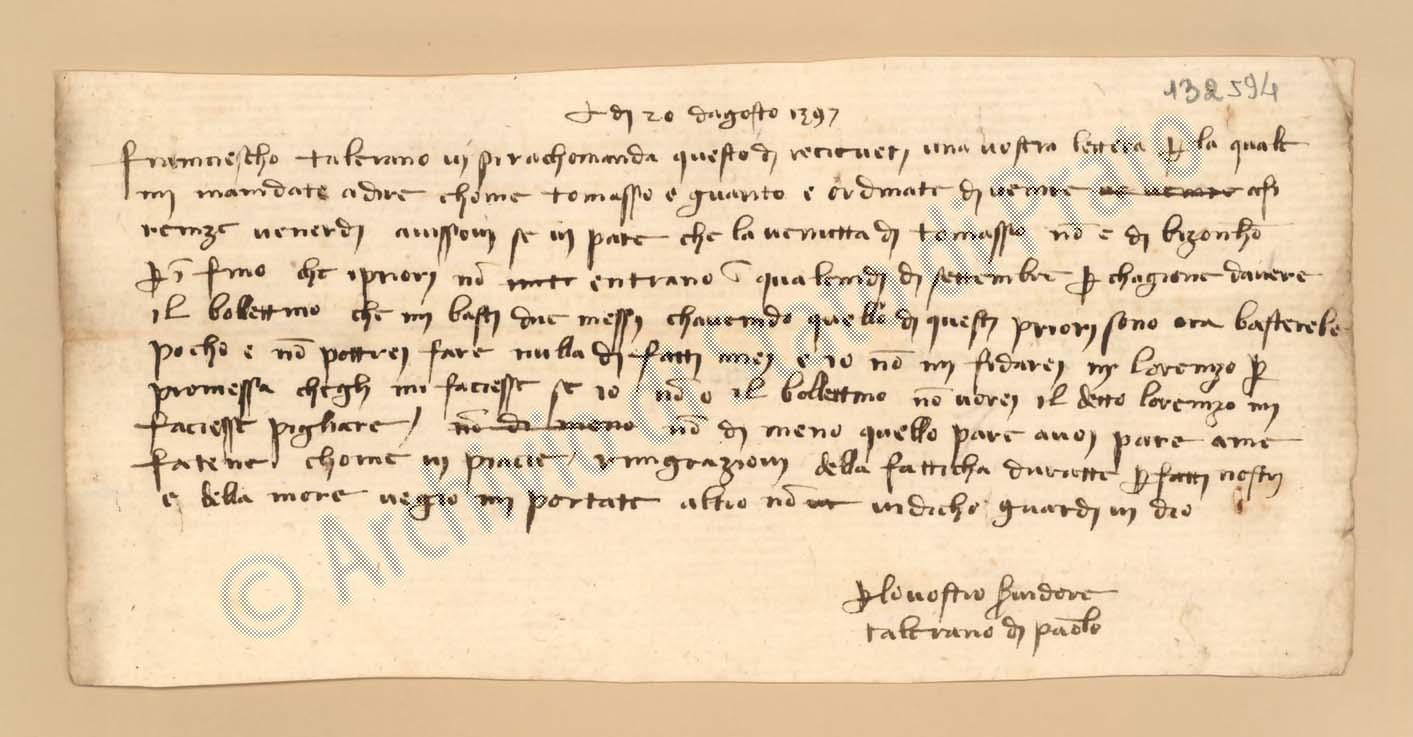 132594
+ di 20 dagosto 1397
Franciescho talerano vi si rachomanda questo di ricievetti una vostra lettera per la quale
mi mandate a dire chome tomasso e guarito e ordinate di venire a fi
renze venerdi avissovi se vi pare che la venutta di tomasso nō e di bizonho
p īfino che i priori nō entrano ī qualendi di settembre p chagione davere
il bollettino che mi basti due messi chavendo quello di questi priori sono ora basterebe
pocho e nō pottrei fare nulla di fatti miei e io nō mi fidarei in lorenzo p
promessa chegli mi faciesse se io nō o il bollettino nō vorei il detto lorenzo mi
faciesse pigliare / nō di meno nō di meno quello pare a voi pare a me
fatene chome vi piacie / ringraziovi della fatticha durette p fatti nostri
e della more vegio mi portate altro nō vi dicho guardi vi dio
p lo vostro servidore
talerano di paolo
© Archivio di Stato di Prato